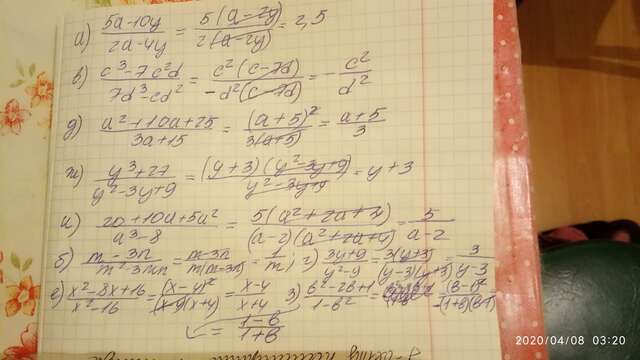 а) (5a-10y)/(2a-4y) = 5(a-2y)/2(a-2y) = 2,5
в) (c³-7c²d)/(7d³-cd²) = c²(c-7d)/-d²(c-7d) = -c²/d²
д) (a²+10a+25)/(3a+15) = (a+5)²/3(a+5) = (a+5)/3
ж) (y³+27)/(y²-3y+9) = (y+3)(y²-3y+9)/(y²-3y+9) = y+3
и) (20+10a+5a²)/(a³-8) = 5(a²+2a+4)/(a-2)(a²+2a+4) = 5/(a-2)
б) (m-3n)/(m²-3mn) = (m-3n)/m(m-3n) = 1/m; г) (3y+9)/(y²-9) = 3(y+3)/(y-3)(y+3) = 3/(y-3)
е) (x²-8x+16)/(x²-16) = (x-4)²/(x-4)(x+4) = (x-4)/(x+4) з) (b²-2b+1)/(1-b²) = (b-1)²/-(1+b)(b-1)
= (1-b)/(1+b)
2020/04/08 03:20